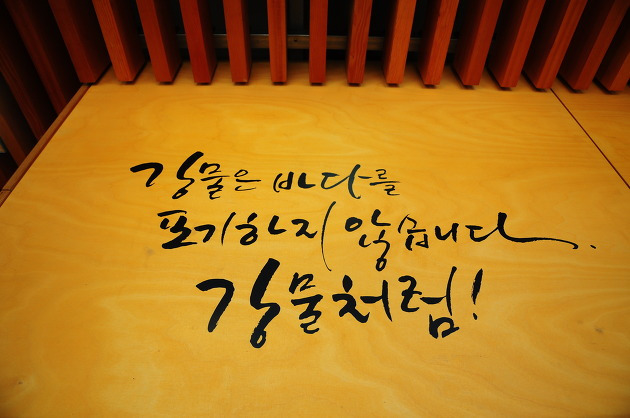 강물은 바다를
포기하지 않습니다.
강물처럼!